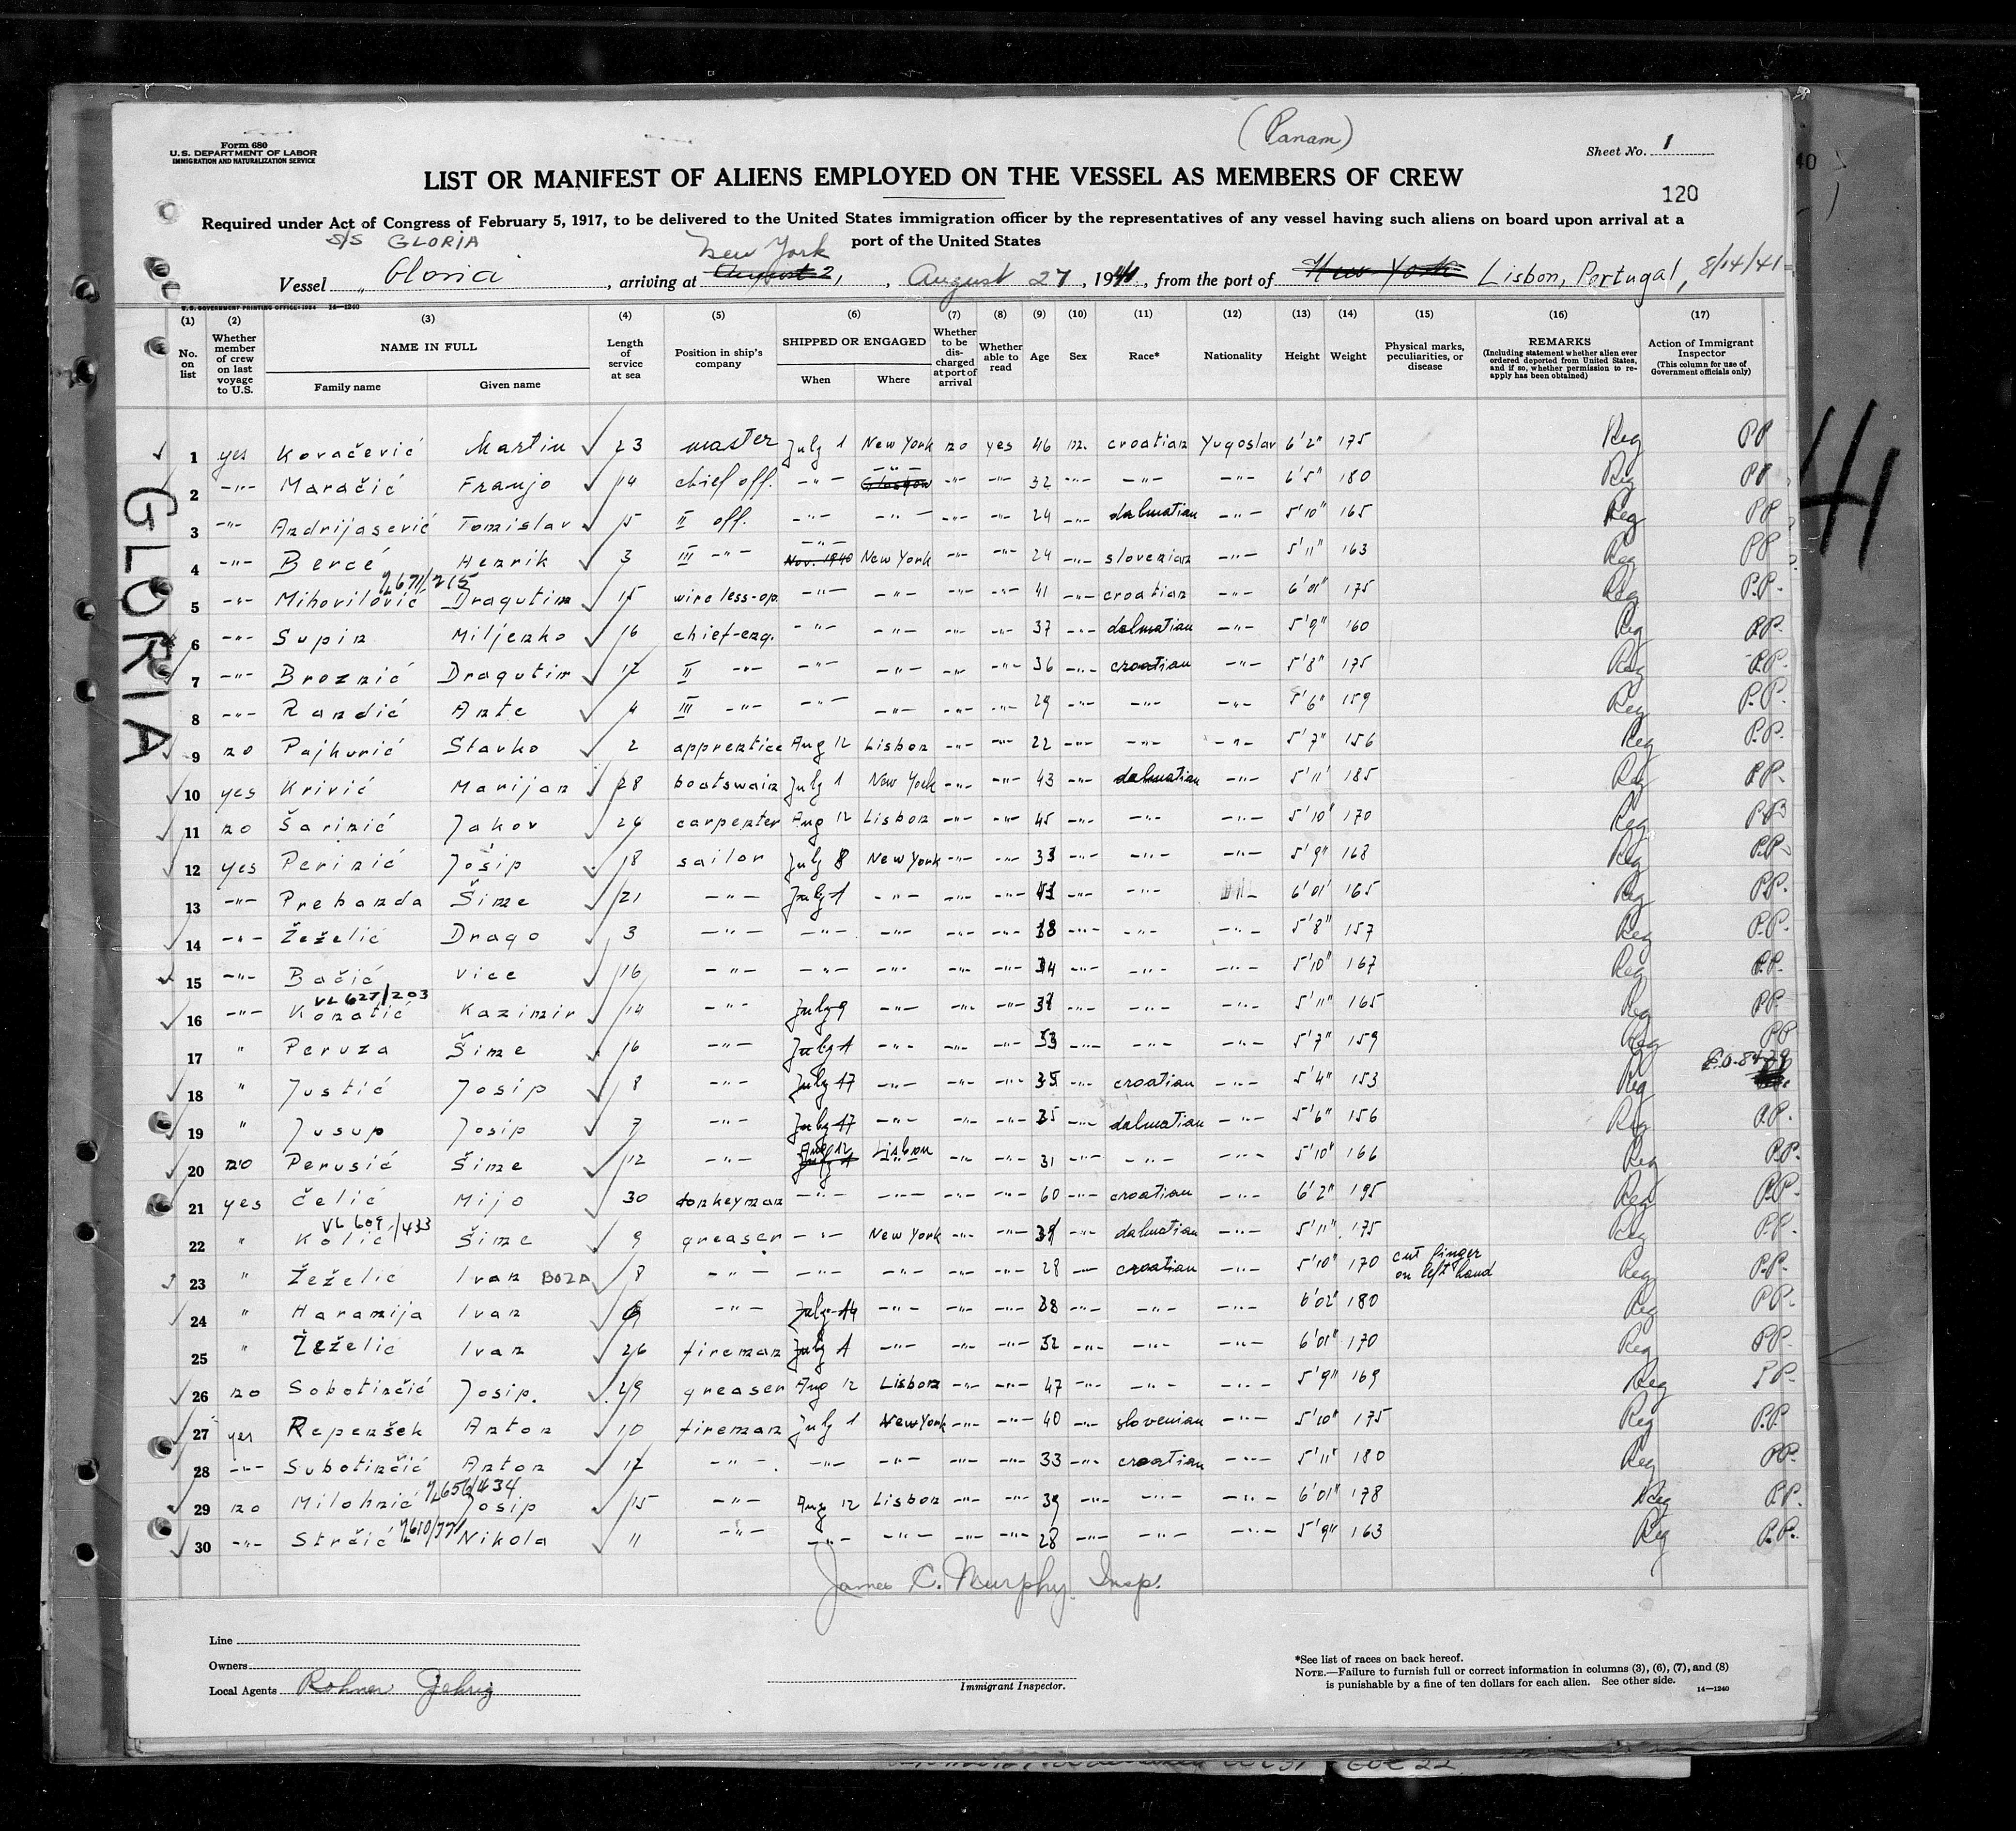 (Panam)
Form 680
U.S. DEPARTMENT OF LABOR
IMMIGRATION AND NATURALIZATION SERVICE
Sheet No. 1
LIST OR MANIFEST OF ALIENS EMPLOYED ON THE VESSEL AS MEMBERS OF CREW
120
Required under Act of Congress of February 5, 1917, to be delivered to the United States immigration officer by the representatives of any vessel having such aliens on board upon arrival at a
port of the United States
S/S GLORIA
New York
Vessel „ Gloria , arriving at August 2, , August 27 , 1941 , from the port of New York Lisbon, Portugal, 8/14/41
U.S. GOVERNMENT PRINTING OFFICE: 1934 14—1240
(1) (2) (3) (4) (5) (6) (7) (8) (9) (10) (11) (12) (13) (14) (15) (16) (17)
No. on list
Whether member of crew on last voyage to U.S.
NAME IN FULL
Family name Given name
Length of service at sea
Position in ship's company
SHIPPED OR ENGAGED
When Where
Whether to be discharged at port of arrival
Whether able to read
Age
Sex
Race*
Nationality
Height
Weight
Physical marks, peculiarities, or disease
REMARKS
(Including statement whether alien ever ordered deported from United States, and if so, whether permission to reapply has been obtained)
Action of Immigrant Inspector
(This column for use of Government officials only)
GLORIA
41
1 yes Kovačević Martin 23 master July 1 New York no yes 46 m. croatian Yugoslav 6'2" 175 Reg PP
2 -"- Maračić Franjo 14 chief off. -"- Glasgow -"- -"- -"- 32 -"- -"- -"- 6'5" 180 Reg PP
3 -"- Andrijasević Tomislav 15 II off. -"- -"- -"- -"- 24 -"- dalmatian -"- 5'10" 165 Reg PP
4 -"- Bercé Henrik 3 III -"- Nov. 1940 -"- New York -"- -"- 24 -"- slovenian -"- 5'11" 163 Reg PP
671/215
5 -"- Mihovilović Dragutin 15 wireless-op. -"- -"- -"- -"- 41 -"- croatian -"- 6'01" 175 Reg P.P.
6 -"- Supin Miljenko 16 chief-eng. -"- -"- -"- -"- 37 -"- dalmatian -"- 5'9" 160 Reg P.P.
7 -"- Broznić Dragutin 17 II -"- -"- -"- -"- -"- 36 -"- croatian -"- 5'8" 175 Reg P.P.
8 -"- Randić Ante 4 III -"- -"- -"- -"- -"- 29 -"- -"- -"- 5'6" 159 Reg P.P.
9 no Pajkurić Slavko 2 apprentice Aug 12 Lisbon -"- -"- 22 -"- -"- -"- 5'7" 156 Reg P.P.
10 yes Krivić Marijan 28 boatswain July 1 New York -"- -"- 43 -"- dalmatian -"- 5'11" 185 Reg P.P.
11 no Šarinić Jakov 26 carpenter Aug 12 Lisbon -"- -"- 45 -"- -"- -"- 5'10" 170 Reg P.P.
12 yes Perinić Josip 18 sailor July 8 New York -"- -"- 33 -"- -"- -"- 5'9" 168 Reg P.P.
13 -"- Prebanda Šime 21 -"- July 1 -"- -"- -"- -"- -"- -"- 6'01" 165 Reg P.P.
14 -"- Žeželić Drago 3 -"- -"- -"- -"- -"- -"- -"- -"- 5'8" 157 Reg P.P.
15 -"- Bačić Vice 16 -"- -"- -"- -"- -"- 34 -"- -"- -"- 5'10" 167 Reg P.P.
VL 627/203
16 -"- Konatić Kazimir 14 -"- July 9 -"- -"- -"- -"- -"- -"- 5'11" 165 Reg P.P.
17 " Peruza Šime 16 -"- July 1 -"- -"- -"- 53 -"- -"- -"- 5'7" 159 Reg PP
18 " Justić Josip 8 -"- July 17 -"- -"- -"- 35 -"- croatian -"- 5'4" 153 Reg
19 " Jusup Josip 7 -"- July 17 -"- -"- -"- 35 -"- dalmatian -"- 5'6" 156 Reg P.P.
20 no Perusić Šime 12 -"- Aug 12 July 1 Lisbon -"- -"- -"- 31 -"- -"- -"- 5'10" 166 Reg P.P.
21 yes Čelić Mijo 30 donkeyman -"- -"- -"- -"- 60 -"- croatian -"- 6'2" 195 Reg P.P.
VL 609/433
22 " Kolić Šime 9 greaser -"- New York -"- -"- -"- dalmatian -"- 5'11" 175 Reg P.P.
23 " Žeželić Ivan BOZA 8 -"- -"- -"- -"- -"- 28 -"- croatian -"- 5'10" 170 cut finger on left hand Reg P.P.
24 " Haramija Ivan -"- July 14 -"- -"- -"- 38 -"- -"- -"- 6'02" 180 Reg P.P.
25 " Žeželić Ivan 26 fireman July 1 -"- -"- -"- 52 -"- -"- -"- 6'01" 170 Reg P.P.
26 no Sobotinčić Josip. 29 greaser Aug 12 Lisbon -"- -"- 47 -"- -"- -"- 5'9" 169 Reg P.P.
27 yes Repenšek Anton 10 fireman July 1 New York -"- -"- 40 -"- slovenian -"- 5'10" 175 Reg P.P.
28 -"- Subotinčić Anton 17 -"- -"- -"- -"- -"- 33 -"- croatian -"- 5'11" 180 Reg P.P.
656/434
29 no Milohnić Josip 15 -"- Aug 12 Lisbon -"- -"- 39 -"- -"- -"- 6'01" 178 Reg P.P.
30 -"- Strčić Nikola 11 -"- -"- -"- -"- -"- 28 -"- -"- -"- 5'9" 163 Reg P.P.
James C. Murphy Insp.
Line
Owners
Local Agents Rohner Gehrig
Immigrant Inspector.
*See list of races on back hereof.
NOTE.—Failure to furnish full or correct information in columns (3), (6), (7), and (8)
is punishable by a fine of ten dollars for each alien. See other side.
14—1240